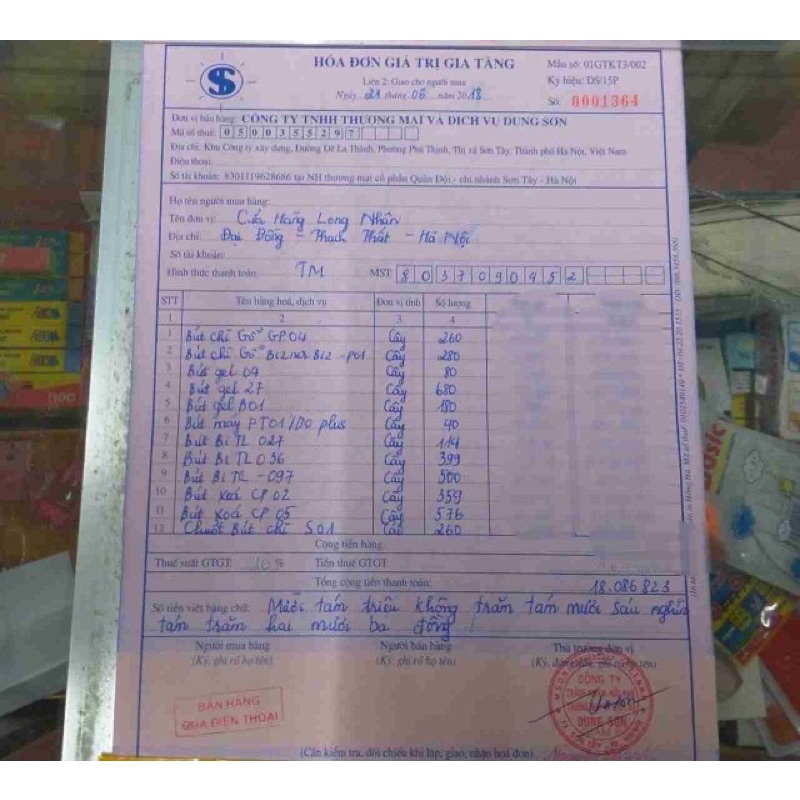 HÓA ĐƠN GIÁ TRỊ GIA TĂNG
Mẫu số: 01GTKT3/002
Liên 2: Giao cho người mua
Ký hiệu: DS/15P
Ngày 21 tháng 06 năm 2018
Số: 0001364
Đơn vị bán hàng: CÔNG TY TNHH THƯƠNG MẠI VÀ DỊCH VỤ DUNG SƠN
Mã số thuế: 0500355297
Địa chỉ: Khu Công ty xây dựng, Đường Đê La Thành, Phường Phú Thịnh, Thị xã Sơn Tây, Thành phố Hà Nội, Việt Nam
Điện thoại:
Số tài khoản: 8301119628686 tại NH thương mại cổ phần Quân Đội - chi nhánh Sơn Tây - Hà Nội
Họ tên người mua hàng:
Tên đơn vị: Cửa Hàng Long Nhân
Địa chỉ: Đại Đồng - Thạch Thất - Hà Nội
Số tài khoản:
Hình thức thanh toán: TM MST: 8037090452
STT Tên hàng hoá, dịch vụ Đơn vị tính Số lượng
1 2 3 4
1 Bút chì Gỗ GP04 Cây 260
2 Bút chì Gỗ Bizner Biz - P01 Cây 280
3 Bút gel 04 Cây 80
4 Bút gel 27 Cây 680
5 Bút gel B01 Cây 180
6 Bút máy FT01/D0 plus Cây 40
7 Bút Bi TL 027 Cây 114
8 Bút Bi TL 036 Cây 399
9 Bút Bi TL - 097 Cây 500
10 Bút xoá CP 02 Cây 359
11 Bút xoá CP 05 Cây 576
12 Chuốt Bút chì S01 Cái 260
Cộng tiền hàng:
Thuế suất GTGT: 10 % Tiền thuế GTGT:
Tổng cộng tiền thanh toán: 18.086.823
Số tiền viết bằng chữ: Mười tám triệu không trăm tám mươi sáu nghìn
tám trăm hai mươi ba đồng
Người mua hàng Người bán hàng Thủ trưởng đơn vị
(Ký, ghi rõ họ tên) (Ký, ghi rõ họ tên) (Ký, đóng dấu, ghi rõ họ tên)
CÔNG TY
DUNG SƠN
BÁN HÀNG
QUA ĐIỆN THOẠI
(Cần kiểm tra, đối chiếu khi lập, giao, nhận hoá đơn)